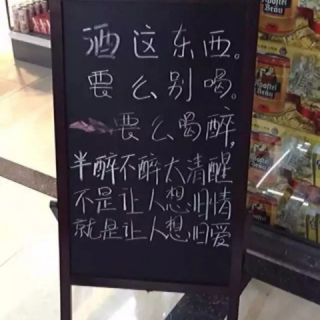 酒这东西。
要么别喝。
要么喝醉,
半醉不醉太清醒
不是让人想旧情
就是让人想旧爱
Apostel
Bräu